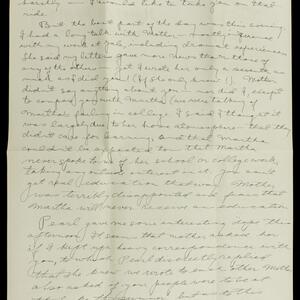 hardly - I would like to take you on that
ride.
But the best part of the day was this evening.
I had a long talk with Mother - mostly
with my work at Yale, including dramat experiences.
She said my letters gave more than those of
any of the others - yet I wrote her only a seventh as
much as I did you! (If she only knew!). Mother
didn't say anything about you - nor did I, except
to compare you with Martha (we were talking of
Martha's failing in college. I said I thought it
was largely due to her house alone
didn't care for learning and that Martha
couldn't be expected to - that Martha
never spoke to me of her school or college work,
taking any outside interest in it. You can't
get real education that way. Mother
was terribly disappointed and
Martha will never receive an education.
Pearl gave me some interesting dope this
afternoon. It seems that mother asked her
if I kept up a heavy correspondence with
you, to which Pearl discreetly replied
that she knew we wrote to each other. Mother
also asked if your people were to be at